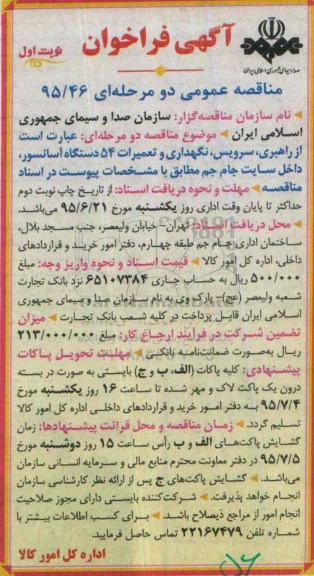 آگهی فراخوان
نوبت اول
صدا و سیمای جمهوری اسلامی ایران
مناقصه عمومی دو مرحله‌ای ۹۵/۴۶
نام سازمان مناقصه‌گزار: سازمان صدا و سیمای جمهوری
اسلامی ایران موضوع مناقصه دو مرحله‌ای: عبارت است
از راهبری، سرویس، نگهداری و تعمیرات ۵۴ دستگاه آسانسور،
داخل سایت جام جم مطابق با مشخصات پیوست در اسناد
مناقصه مهلت و نحوه دریافت اسناد: از تاریخ چاپ نوبت دوم
حداکثر تا پایان وقت اداری روز یکشنبه مورخ ۹۵/۶/۲۱ می‌باشد.
محل دریافت اسناد: تهران- خیابان ولیعصر، جنب مسجد بلال،
ساختمان اداری جام جم طبقه چهارم، دفتر امور خرید و قراردادهای
داخلی، اداره کل امور کالا قیمت اسناد و نحوه واریز وجه: مبلغ
۵۰۰/۰۰۰ ریال به حساب جاری ۶۵۱۰۷۳۸۴ نزد بانک تجارت
شعبه ولیعصر (عج)- پارک وی به نام سازمان صدا و سیمای جمهوری
اسلامی ایران قابل پرداخت در کلیه شعب بانک تجارت میزان
تضمین شرکت در فرآیند ارجاع کار: مبلغ ۲۱۳/۰۰۰/۰۰۰
ریال به‌صورت ضمانت‌نامه بانکی مهلت تحویل پاکات
پیشنهادی: کلیه پاکات (الف، ب و ج) بایستی به صورت در بسته
درون یک پاکت لاک و مهر شده تا ساعت ۱۶ روز یکشنبه مورخ
۹۵/۷/۴ به دفتر امور خرید و قراردادهای داخلی اداره کل امور کالا
تسلیم گردد. زمان مناقصه و محل قرائت پیشنهادها: زمان
گشایش پاکت‌های الف و ب رأس ساعت ۱۵ روز دوشنبه مورخ
۹۵/۷/۵ در دفتر معاونت محترم منابع مالی و سرمایه انسانی سازمان
می‌باشد. گشایش پاکت‌های ج پس از ارائه نظر کارشناسی سازمان
انجام خواهد پذیرفت. شرکت‌کننده بایستی دارای مجوز صلاحیت
انجام امور از مراجع ذیصلاح باشد. برای کسب اطلاعات بیشتر با
شماره تلفن ۲۲۱۶۷۴۷۹ تماس حاصل فرمایید.
اداره کل امور کالا